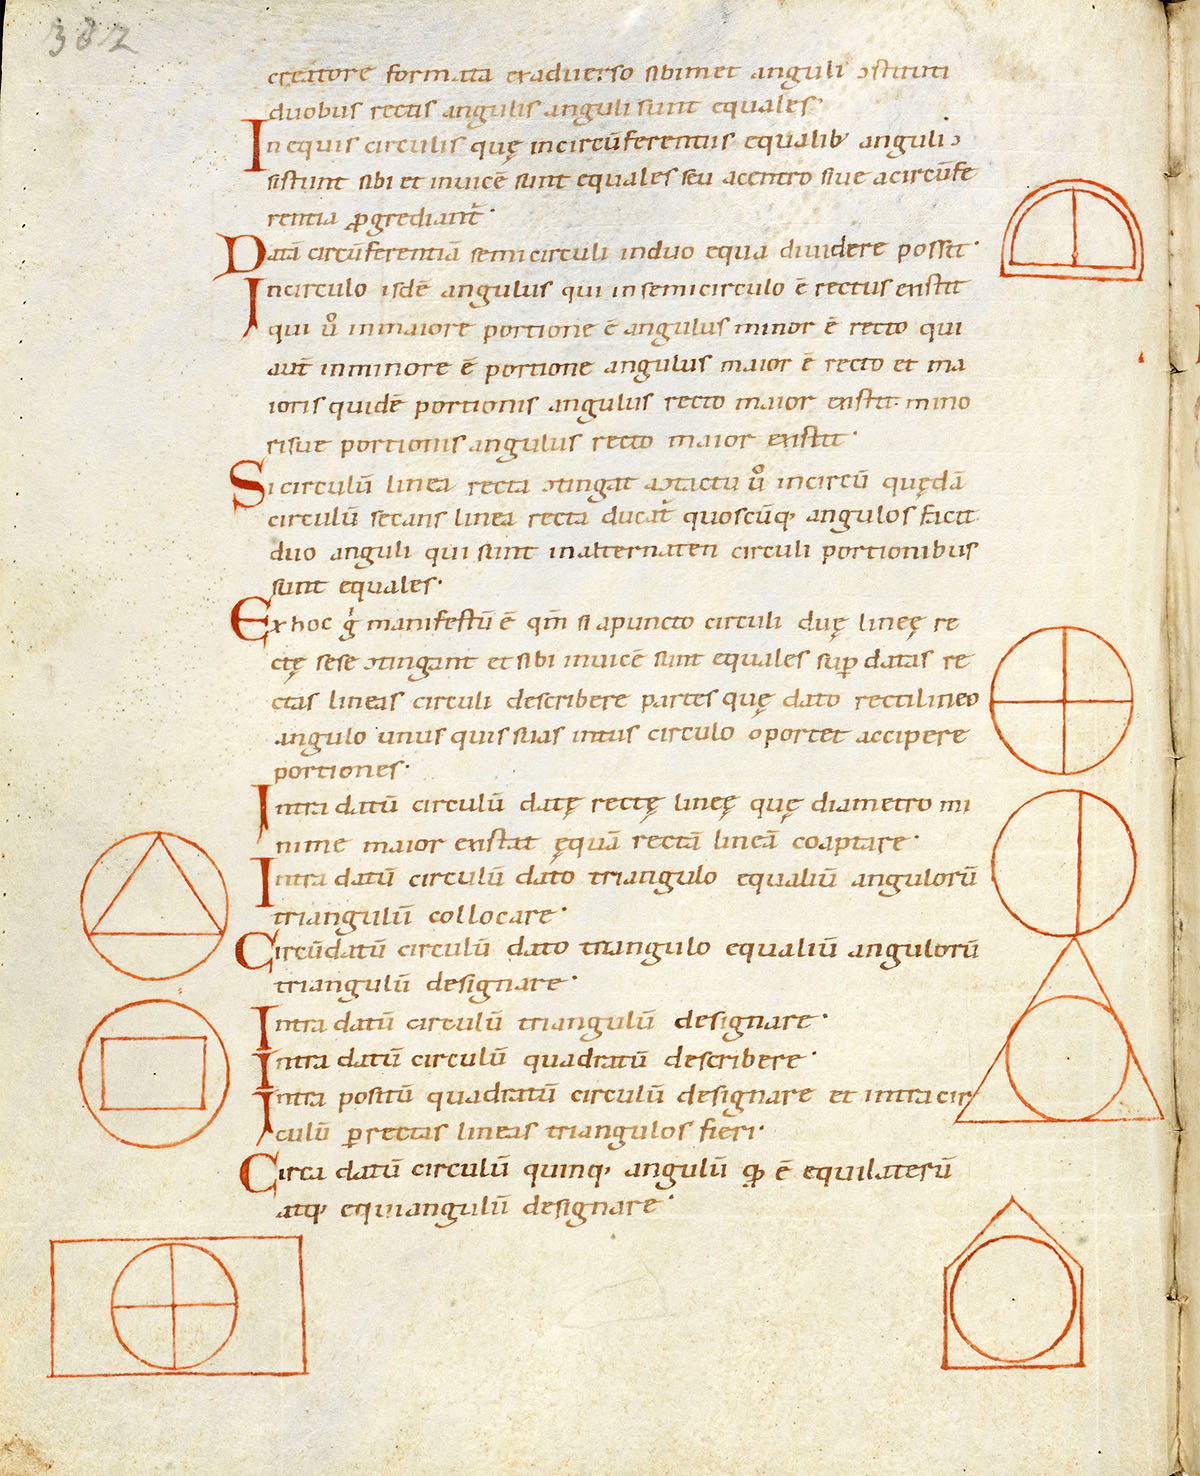 382
creatore formata exaduerso sibimet anguli ɔstituti
duobus rectis angulis anguli sunt equales·
In equis circulis quę in circūferentiis equalib' anguli ɔ
sistunt sibi et inuicē sunt equales seu acentro siue a circūfe
rentia ꝓgrediant̄·
Datā circūferentiā semicirculi in duo equa diuidere possit·
In circulo isdē angulus qui in semicirculo ē rectus existit
qui ů in maiore portione ē angulus minor ē recto qui
aut̄ in minore ē portione angulus maior ē recto et ma
ioris quidē portionis angulus recto maior existit· mino
risue portionis angulus recto maior existit·
Si circulū linea recta ɔtingat aɔtactu ů in circū quędā
circulū secans linea recta ducat̄ quoscūq; angulos facit
duo anguli qui sunt in alternaten circuli portionibus
sunt equales·
Ex hoc g̍ manifestū ē qm̄ si apuncto circuli duę lineę re
ctę sese ɔtingant et sibi inuicē sunt equales suꝑ datas re
ctas lineas circuli describere partes quę dato rectilineo
angulo unus quis suas intus circulo oportet accipere
portiones·
Intra datū circulū datę rectę lineę quę diametro mi
nime maior existat ęquā rectā lineā coaptare·
Intra datū circulū dato triangulo equaliū angulorū
triangulū collocare·
Circūdatū circulū dato triangulo equaliū angulorū
triangulū designare·
Intra datū circulū triangulū designare·
Intra datū circulū quadratū describere·
Intra positū quadratū circulū designare et intra cir
culū ꝑ rectas lineas triangulos fieri·
Circa datū circulū quinq; angulū qđ ē equilaterū
atq; equiangulū designare·